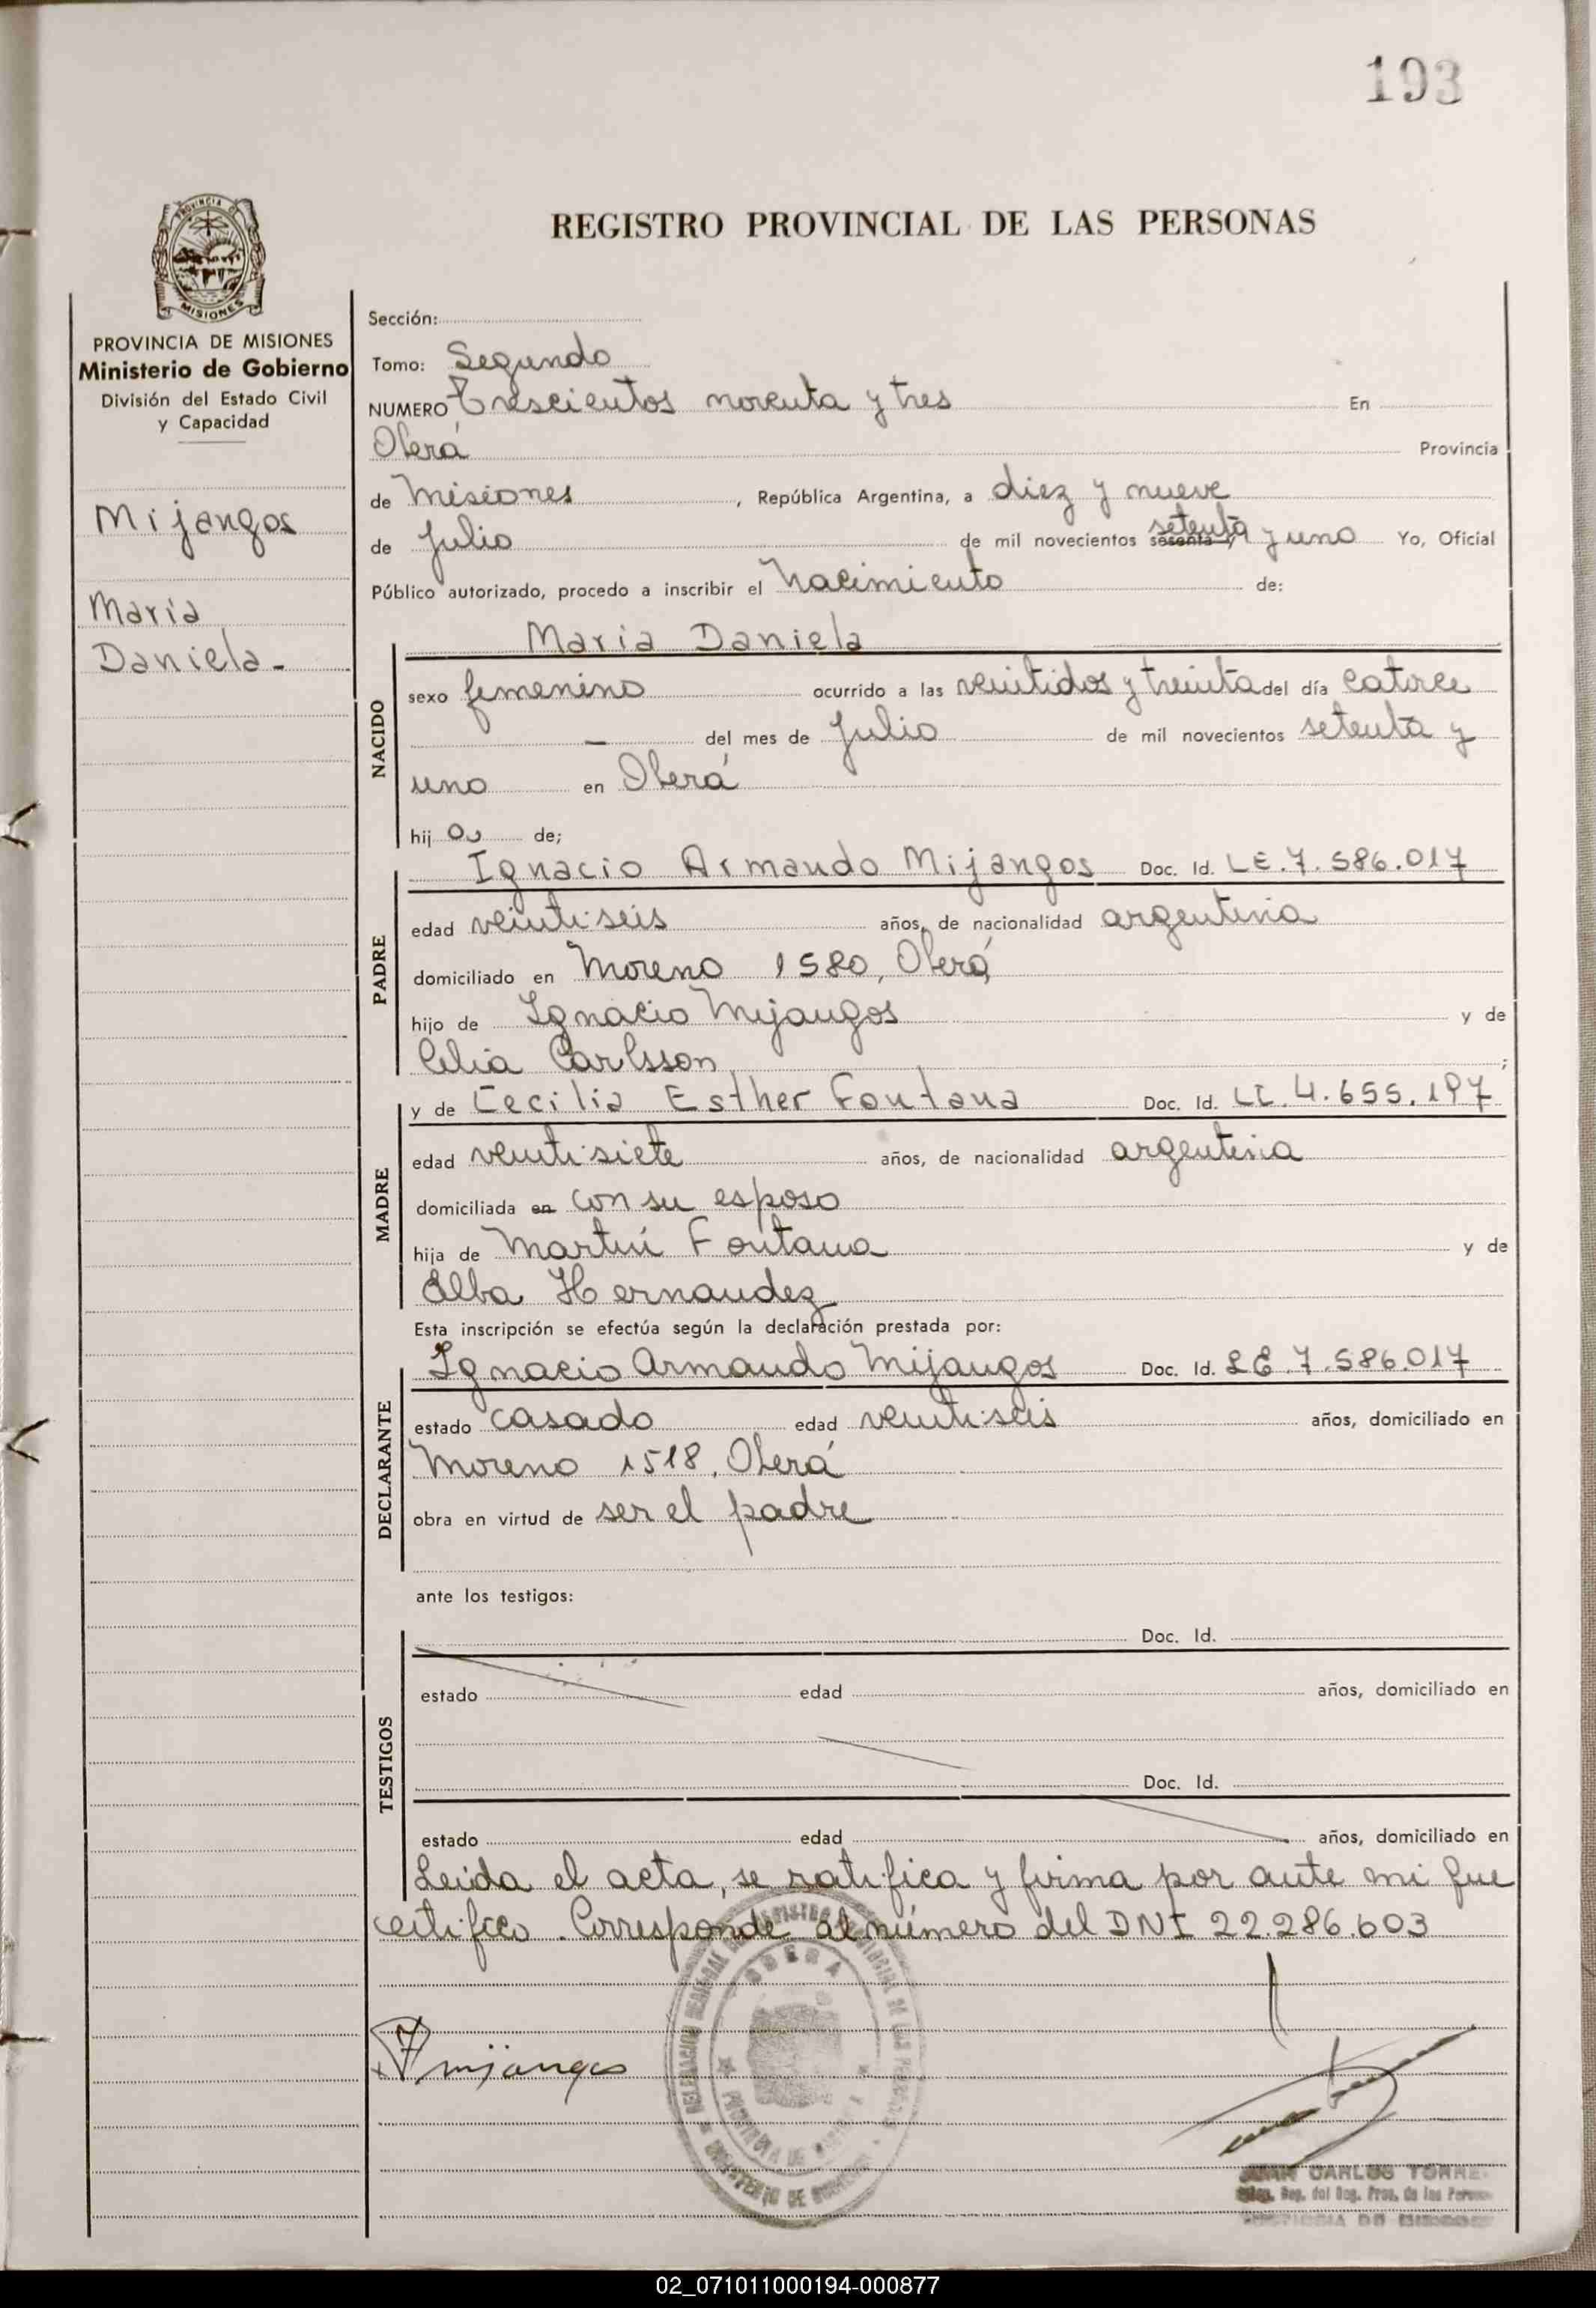 193
PROVINCIA DE
MISIONES
REGISTRO PROVINCIAL DE LAS PERSONAS
PROVINCIA DE MISIONES
Ministerio de Gobierno
División del Estado Civil
y Capacidad
Mijangos
María
Daniela.-
Sección:
Tomo: Segundo
NUMERO Trescientos noventa y tres En
Oberá Provincia
de Misiones, República Argentina, a diez y nueve
de Julio de mil novecientos sesenta y setenta y uno Yo, Oficial
Público autorizado, procedo a inscribir el Nacimiento de:
NACIDO
María Daniela
sexo femenino ocurrido a las veintidos y treinta del día catorce
— del mes de Julio de mil novecientos setenta y
uno en Oberá
hij a de;
PADRE
Ignacio Armando Mijangos Doc. Id. LE.7.586.017
edad veintiseis años, de nacionalidad argentina
domiciliado en Moreno 1580, Oberá
hijo de Ignacio Mijangos y de
Celia Carlsson;
MADRE
y de Cecilia Esther Fontana Doc. Id. LC.4.655.197
edad veintisiete años, de nacionalidad argentina
domiciliada en con su esposo
hija de Martín Fontana y de
Elba Hernandez
Esta inscripción se efectúa según la declaración prestada por:
DECLARANTE
Ignacio Armando Mijangos Doc. Id. LE.7.586.017
estado casado edad veintiseis años, domiciliado en
Moreno 1518, Oberá
obra en virtud de ser el padre
ante los testigos:
TESTIGOS
Doc. Id.
estado edad años, domiciliado en
Doc. Id.
estado edad años, domiciliado en
Leida el acta, se ratifica y firma por ante mi que
certifico. Corresponde al número del DNI 22.286.603
Mijangos
OBERA
JUAN CARLOS TORRE
Deleg. Reg. del Reg. Prov. de las Personas
PROVINCIA DE MISIONES
02_071011000194-000877